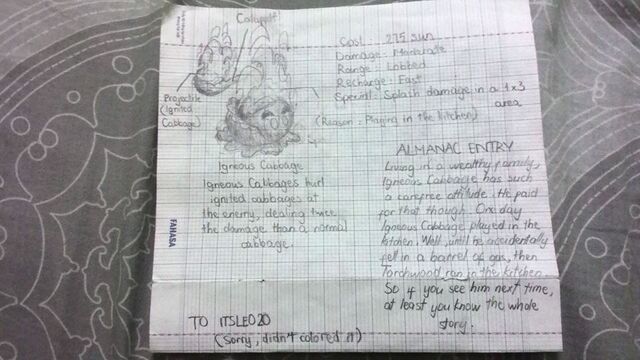 Catapult
Projectile
(Ignited
Cabbage)
Igneous Cabbage
Igneous Cabbages hurl
ignited cabbages at
the enemy, dealing twice
the damage than a normal
cabbage.
TO ITSLEO20
(Sorry, didn't colored it)
FAHASA
Cost : 275 sun
Damage : Moderate
Range : Lobbed
Recharge : Fast
Special : Splash damage in a 1x3
area
(Reason : Playing in the kitchen)
ALMANAC ENTRY
Living in a wealthy family,
Igneous Cabbage has such
a carefree attitude. He paid
for that though. One day
Igneous Cabbage played in the
kitchen. Well, until he accidentally
fell in a barrel of gas, then
Torchwood ran in the kitchen.
So if you see him next time,
at least you know the whole
story.